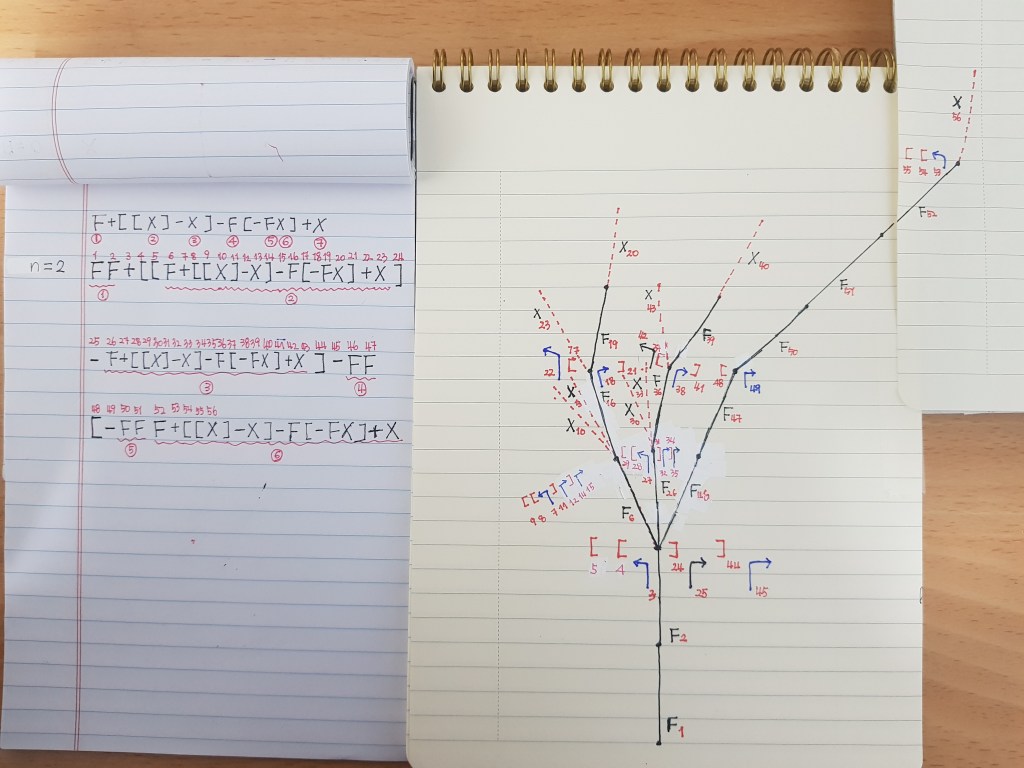 F+[[X]-X]-F[-FX]+X
① ② ③ ④ ⑤ ⑥ ⑦
1 2 3 4 5 6 7 8 9 10 11 12 13 14 15 16 17 18 19 20 21 22 23 24
n=2 FF+[[F+[[X]-X]-F[-FX]+X]
① ②
25 26 27 28 29 30 31 32 33 34 35 36 37 38 39 40 41 42 43 44 45 46 47
-F+[[X]-X]-F[-FX]+X]-FF
③ ④
48 49 50 51 52 53 54 55 56
[-FFF+[[X]-X]-F[-FX]+X
⑤ ⑥
X
56
[ [
55 54 53
F52
X20
X40
X
43
F51
X
23
F19
F39
F50
17
[
22
18
]21
38
]
41
[
48
49
F16
F36
F47
X
X10
X
30
[[
29 28
27
32 35
[[ ]
9 8 7 11 12 14 15
F6
F26
F46
[ [ ] ]
5 4 3 24 25 44 45
F2
F1